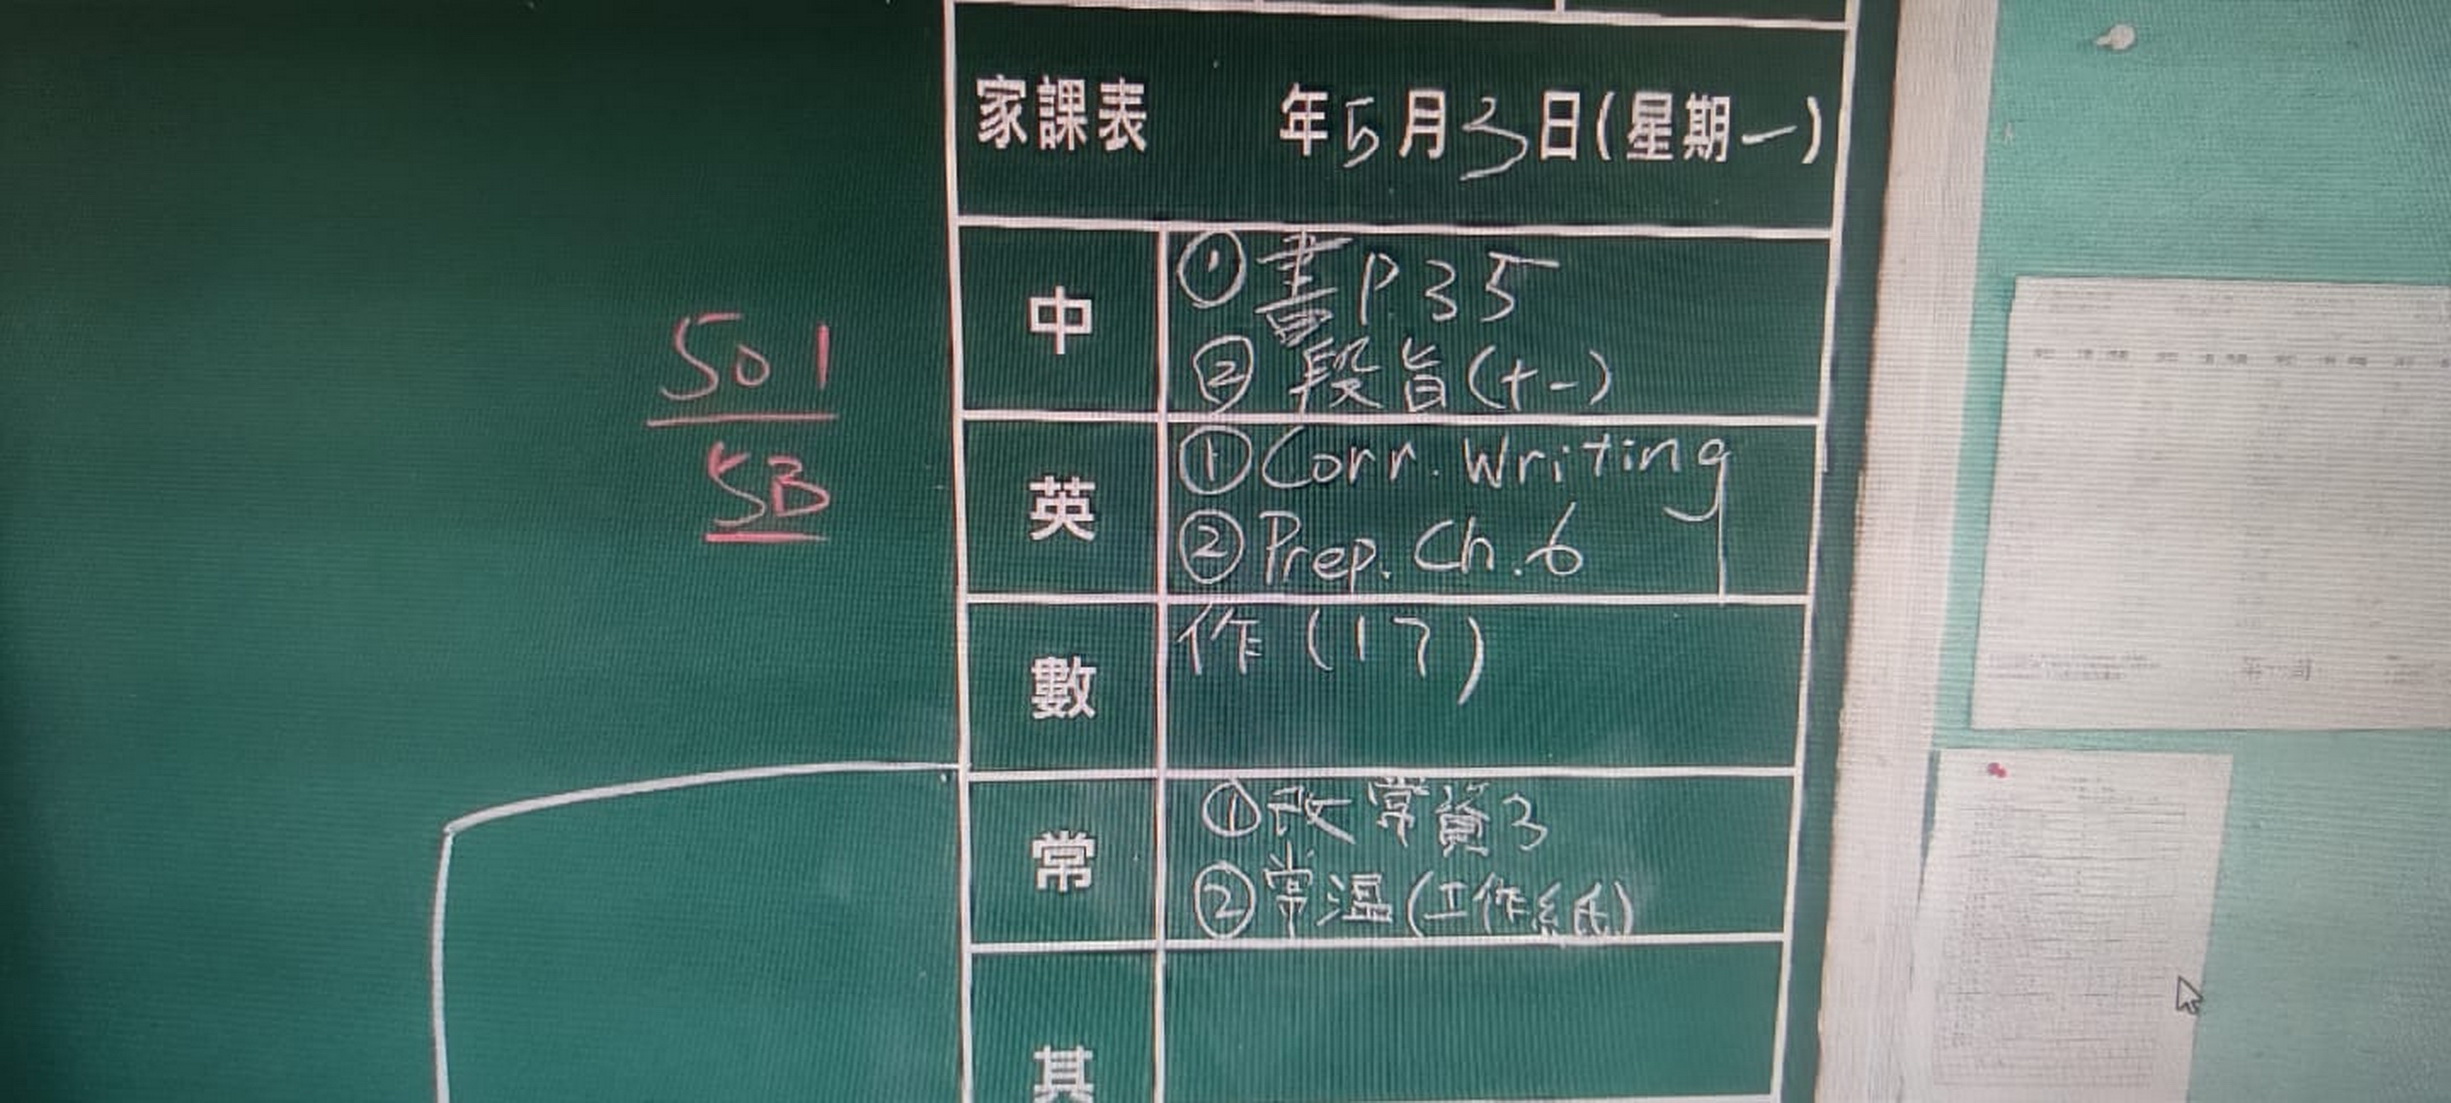 家課表 年5月3日(星期一)
中
①書P.35
②段旨(十一)
501
5B
英
①Corr. Writing
②Prep. Ch.6
數
作(17)
常
①改常資3
②常溫(工作紙)
其